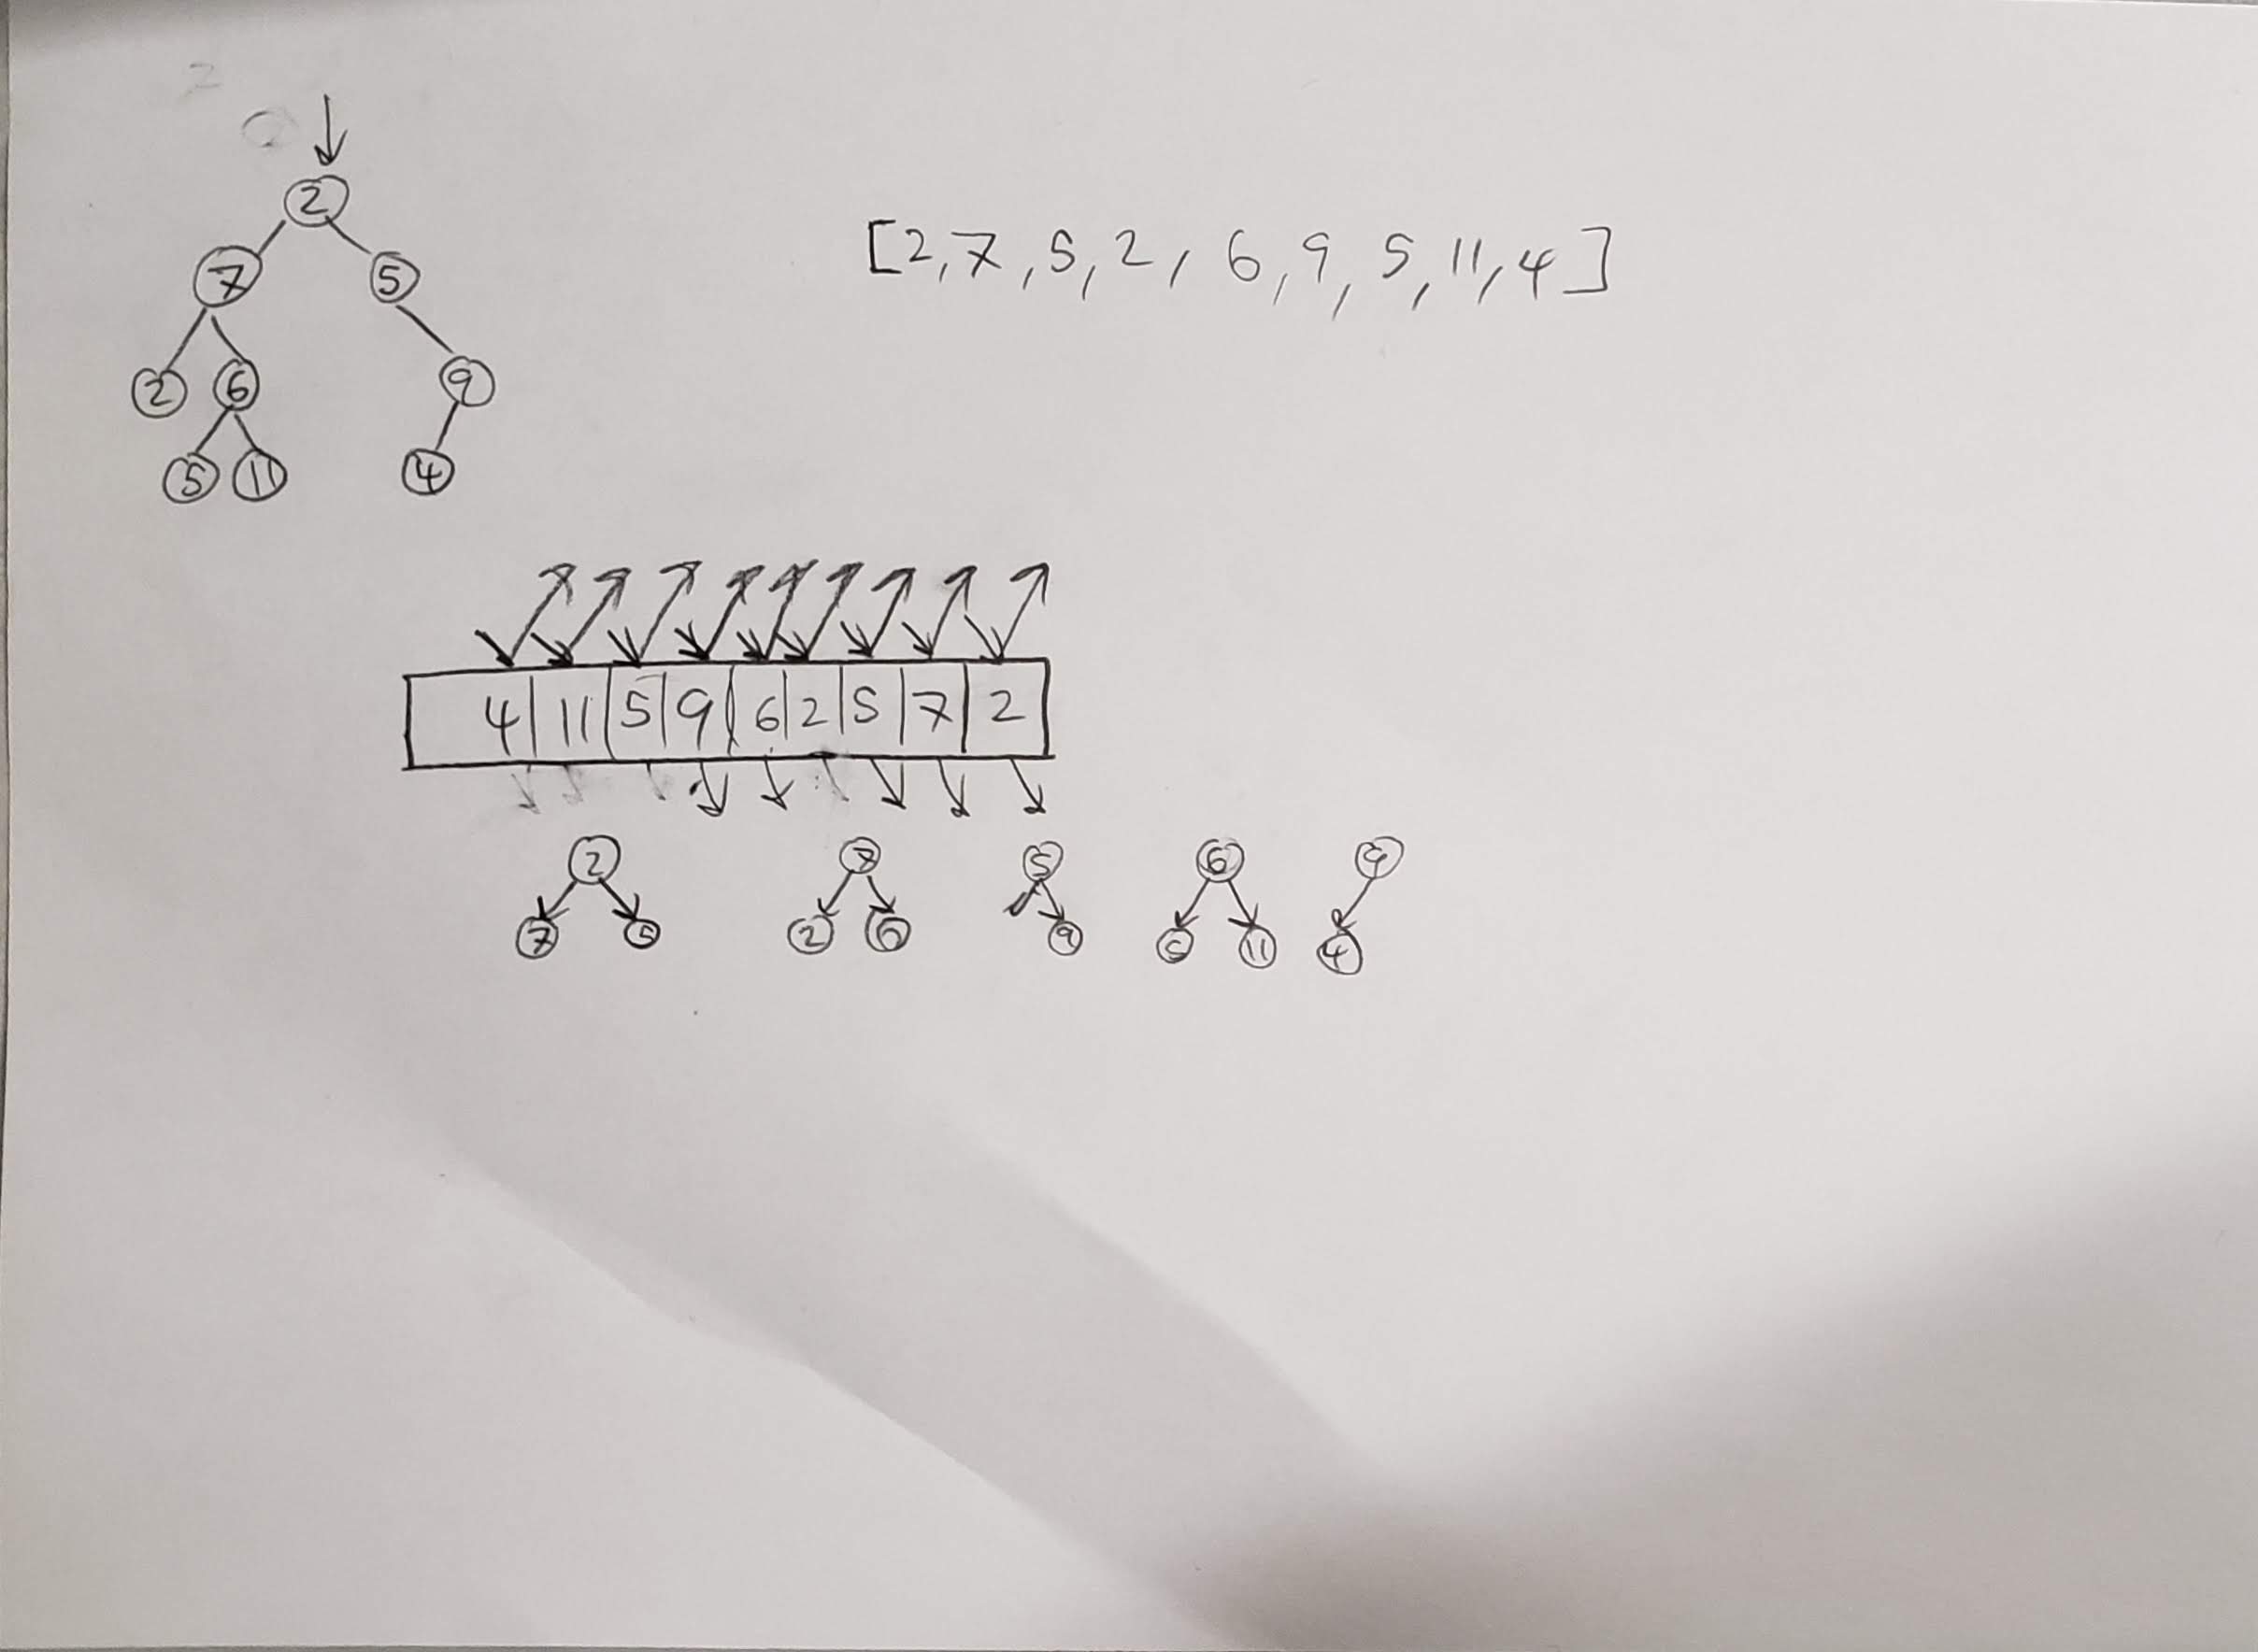 2
2
[2,7,5,2,6,9,5,11,4]
7 5
2 6 9
5 11 4
4 11 5 9 6 2 5 7 2
2 7 5 6 9
7 5 2 6 9 5 11 4